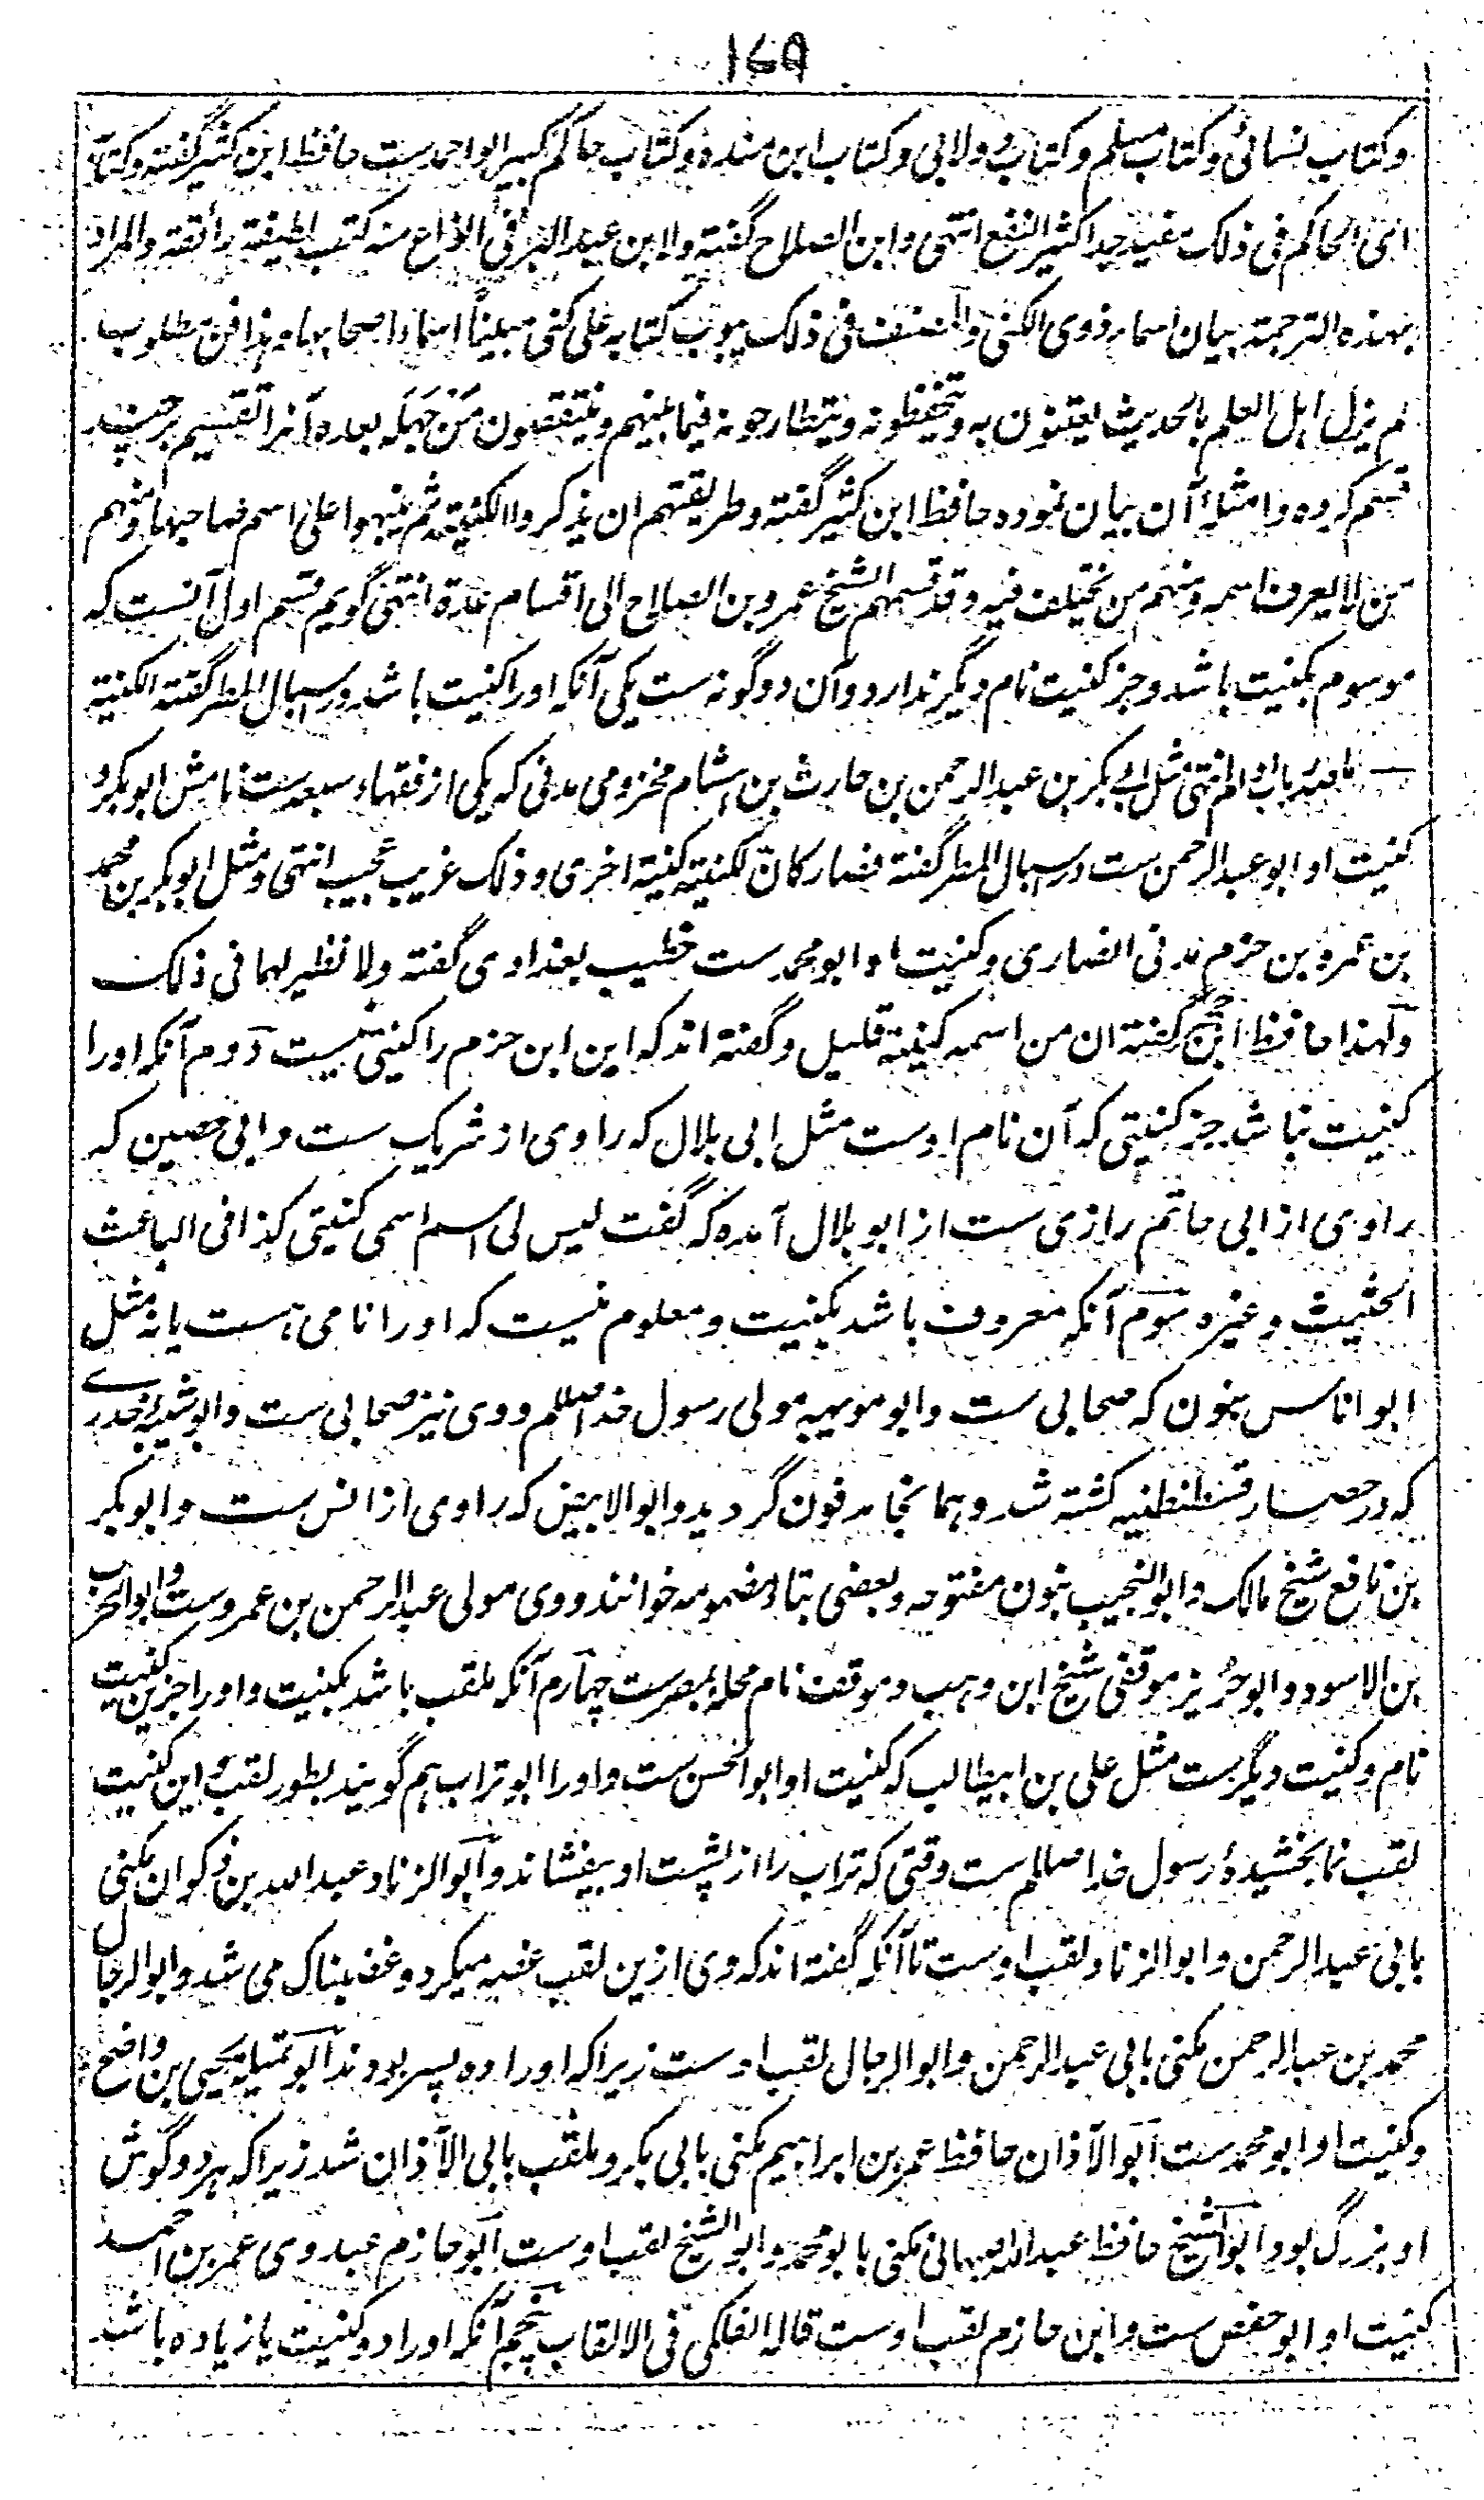 ۱۷۹
وکتاب نسائی وکتاب مسلم وکتاب دولابی وکتاب ابن مندہ وکتاب حاکم کبیر ابو احمدست حافظ ابن کثیر گفتہ وکتاب
ابی الحاکم فی ذلک مفید جدا کثیر النفع انتہی وابن الصلاح گفتہ ولابن عبد البر فی انواع منہ کتب لطیفۃ رائقۃ والمراد
بہذہ الترجمۃ بیان اسماء ذوی الکنی والمصنف فی ذلک یبوب کتابہ علی کنی مبیناً اسماء اصحابہا وہذا فن مطلوب
لم یزل اہل العلم بالحدیث یعتنون بہ ویحفظونہ ویتطارحونہ فیما بینہم وینتقصون من جہلہ بعدہ آنرا تقسیم برچند
قسم کردہ وامثلہ آن بیان نمودہ حافظ ابن کثیر گفتہ وطریقتہم ان یذکروا الکنیۃ ثم ینبہوا علی اسم صاحبہا ومنہم
من لا یعرف اسمہ ومنہم من یختلف فیہ وقد قسمہم الشیخ عمرو بن الصلاح الی اقسام عدۃ انتہی گویم قسم اول آنست کہ
موسوم بکنیت باشد وجز کنیت نام دیگر ندارد وآن دوگونہ ست یکی آنکہ اورا کنیت باشد در اسبال المطر گفتہ الکنیۃ
انتہی مثل ابی بکر بن عبد الرحمن بن حارث بن ہشام مخزومی مدنی کہ یکی از فقہاء سبعہ ست نامش ابوبکر و
کنیت او ابو عبد الرحمن ست در اسبال المطر گفتہ فصار کان لکنیتہ کنیۃ اخری وذلک غریب عجیب انتہی ومثل ابوبکر بن محمد
بن عمرو بن حزم مدنی انصاری وکنیت او ابو محمدست خطیب بغدادی گفتہ ولا نظیر لہما فی ذلک
ولہذا حافظ ابن حجر گفتہ ان من اسمہ کنیتہ قلیل وگفتہ اند کہ این ابن حزم را کنیتی نیست دوم آنکہ اورا
کنیت نباشد جز کنیتی کہ آن نام اوست مثل ابی بلال کہ راوی از شریک ست وابی حصین کہ
راوی از ابی حاتم رازی ست از ابو بلال آمدہ کہ گفت لیس لی اسم اسمی کنیتی کذا فی الباعث
الحثیث وغیرہ سوم آنکہ معروف باشد بکنیت ومعلوم نیست کہ اورا نامی ہست یا نہ مثل
ابو اناس بنون کہ صحابی ست وابو مویہبہ مولی رسول خدا صللم ووی نیز صحابی ست وابو شیبہ خدری
کہ در حصار قسطنطنیہ کشتہ شد وہمانجا مدفون گردید وابو الابیض کہ راوی از انس ست وابوبکر
بن نافع شیخ مالک وابو النجیب بنون مفتوحہ وبعضی بتاء مضمومہ خوانند ووی مولی عبد الرحمن بن عمروست وابو الحرب
بن الاسود وابو حریز موقفی شیخ ابن وہب وموقف نام محلہ بمصرست چہارم آنکہ ملقب باشد بکنیت واورا جز این کنیت
نام وکنیت دیگرست مثل علی بن ابیطالب کہ کنیت او ابو الحسن ست واورا ابو تراب ہم گویند بطور لقب واین کنیت
لقب نما بخشیدۂ رسول خدا صللم ست وقتی کہ تراب را از پشت او بیفشاند وابو الزناد عبد اللہ بن ذکوان مکنی
بابی عبد الرحمن وابو الزناد لقب اوست تا آنکہ گفتہ اند کہ وی ازین لقب غصہ میکرد وغضبناک می شد وابو الرجال
محمد بن عبد الرحمن مکنی بابی عبد الرحمن وابو الرجال لقب اوست زیرا کہ اورا دہ پسر بودند ابو تمیلہ یحیی بن واضح
وکنیت او ابو محمدست ابو الآذان حافظ عمر بن ابراہیم مکنی بابی بکر وملقب بابی الآذان شد زیرا کہ ہر دو گوش
او بزرگ بود ابو الشیخ حافظ عبد اللہ اصبہانی مکنی بابو محمد وابو الشیخ لقب اوست ابو حازم عبدوی عمر بن احمد
کنیت او ابو حفص ست وابن حازم لقب اوست قالہ الفلکی فی الالقاب پنجم آنکہ اورا دو کنیت یا زیادہ باشد